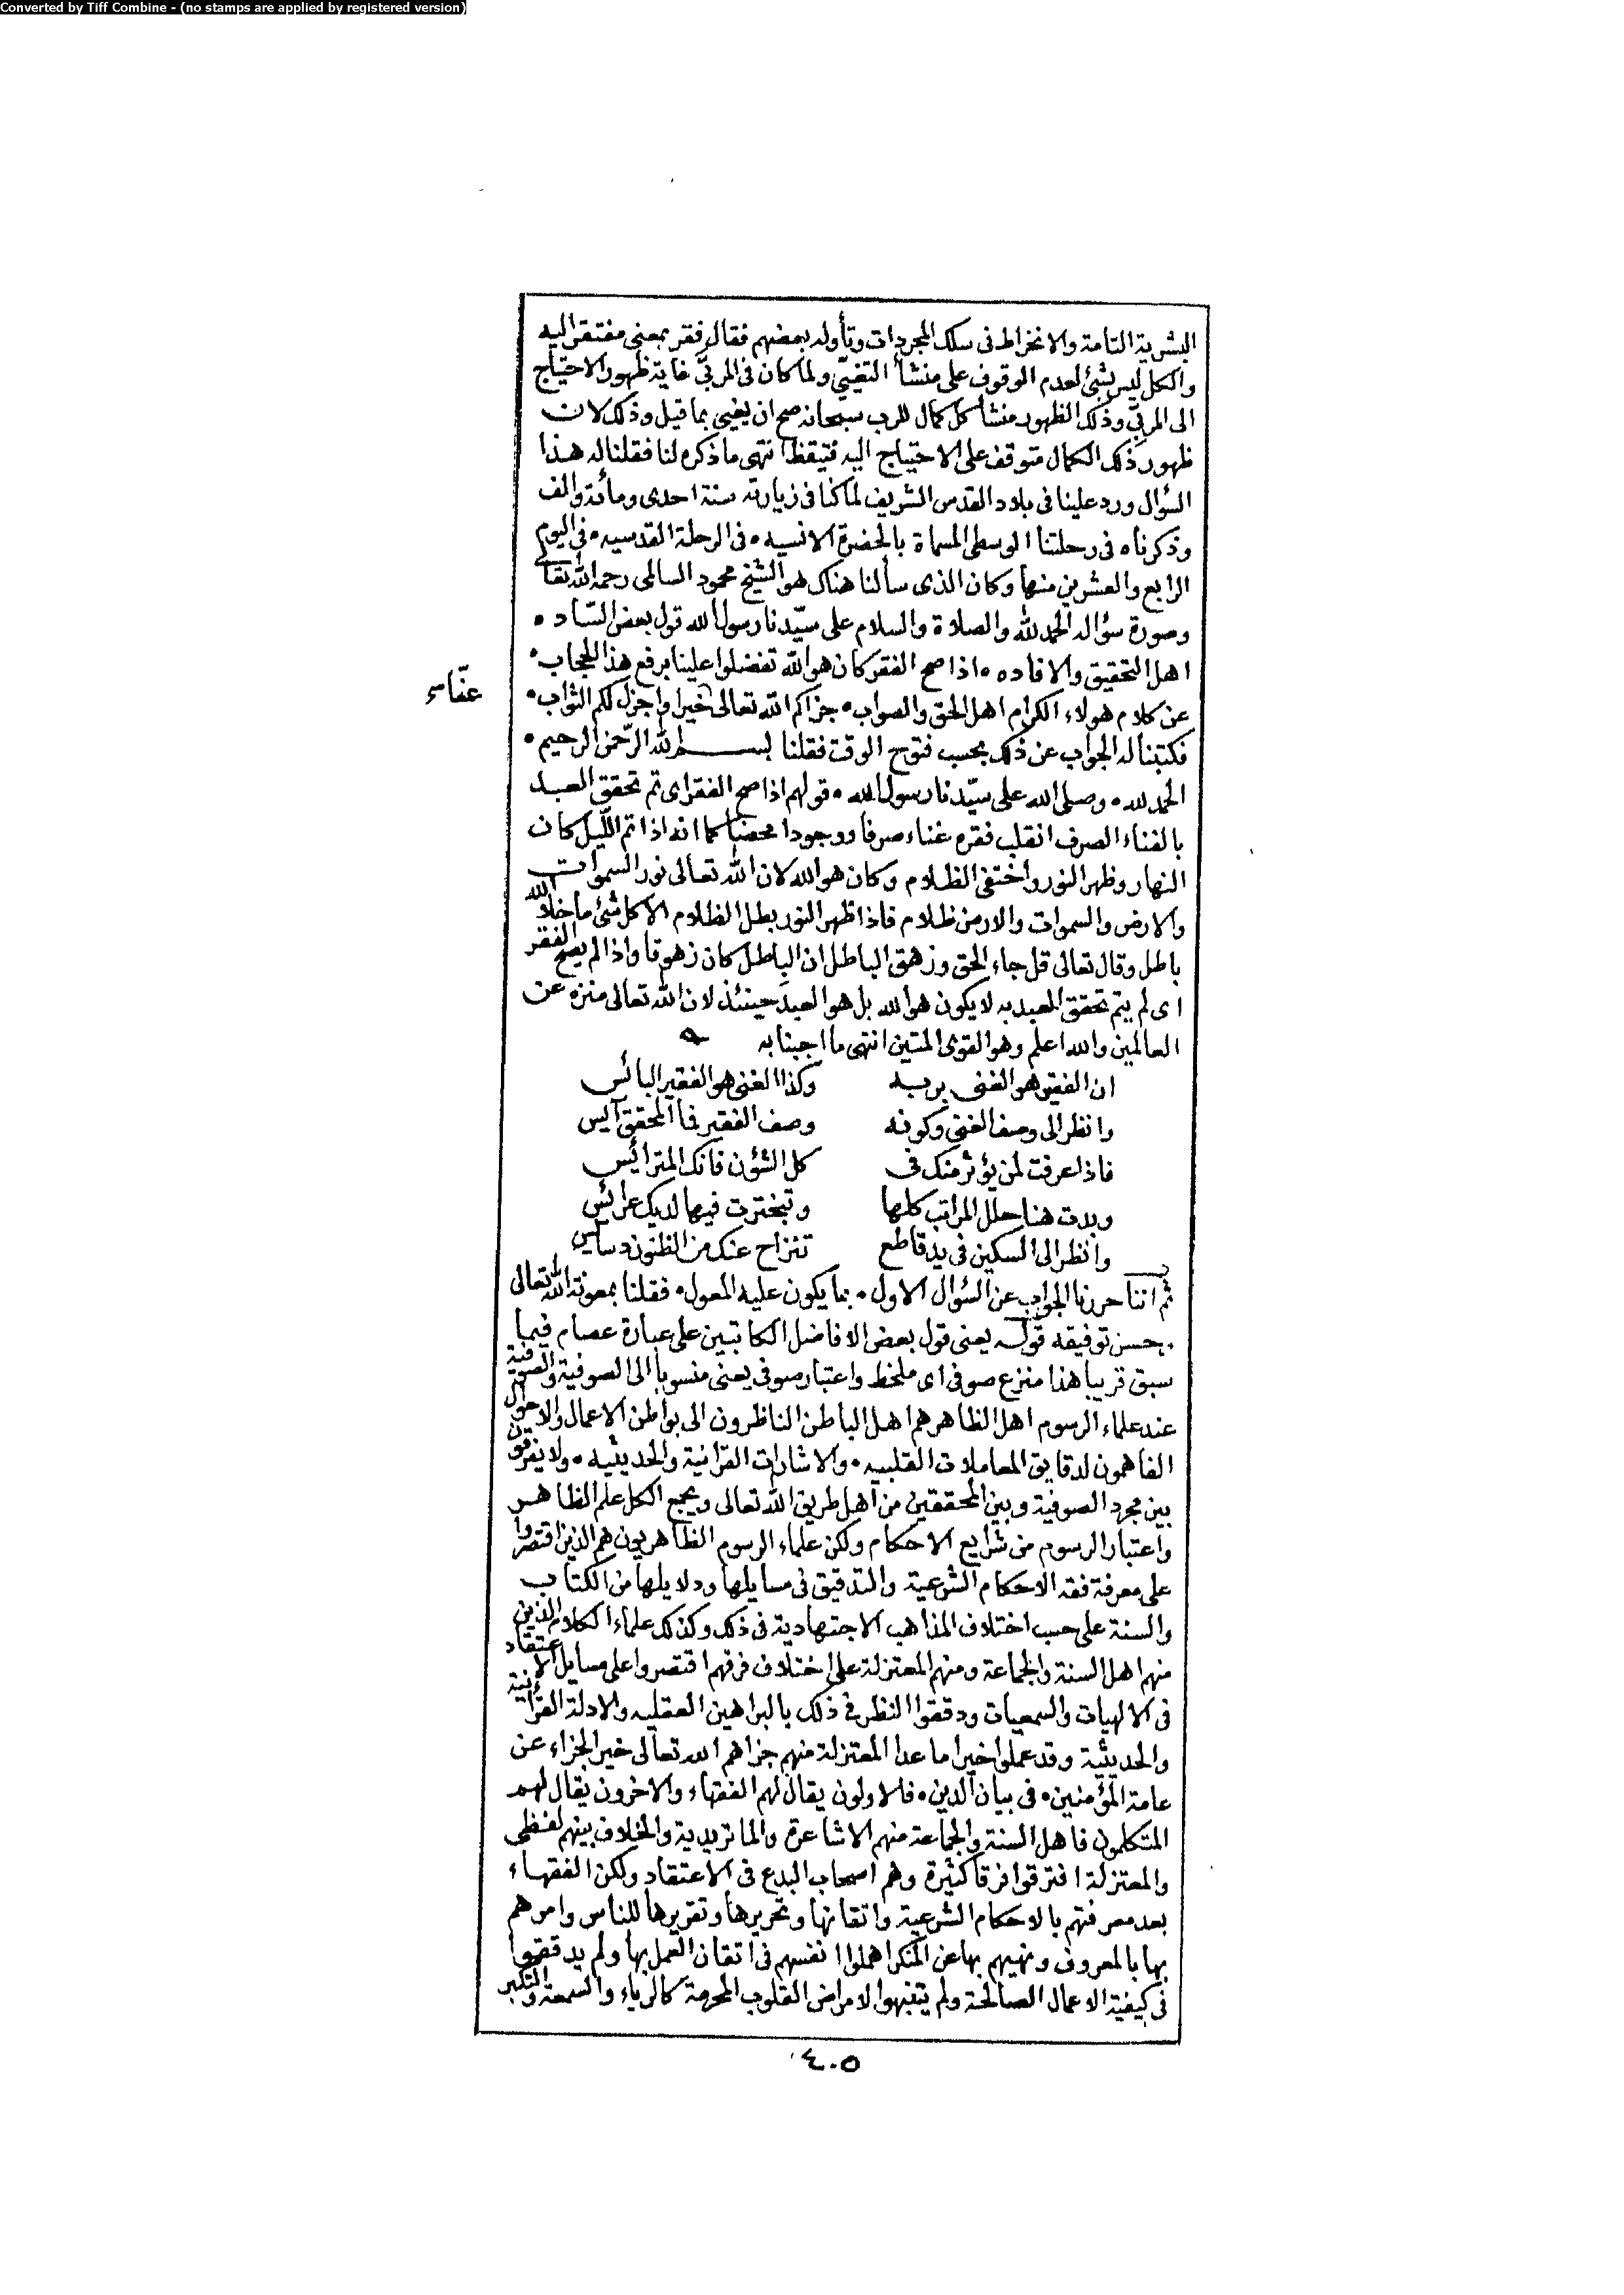 Converted by Tiff Combine - (no stamps are applied by registered version)
البشرية التامة والانخراط فى سلك المجردات وتأوله بعضهم فقال فقر بمعنى مفتقر اليه
والكل ليس بشئ لعدم الوقوف على منشأ التغيي ولما كان فى المربَّى غاية ظهور الاحتياج
الى المربِّى وذلك الظهور منشأ كل كمال للرب سبحانه صح ان يغيى بما قيل وذلك لان
ظهور ذلك الكمال متوقف على الاحتياج اليه فتيقظ انتهى ما ذكره لنا فقلنا له هذا
السؤال ورد علينا فى بلاد القدس الشريف لما كنا فى زيارته سنة احدى ومائة والف
وذكرناه فى رحلتنا الوسطى المسماة بالحضرة الانسيه ٠ فى الرحلة القدسيه ٠ فى اليوم
الرابع والعشرين منها وكان الذى سألنا هناك هو الشيخ محمود السالمى رحمه الله تعا
وصورة سؤاله الحمد لله والصلاة والسلام على سيّدنا رسول الله قول بعض السّاده ٠
اهل التحقيق والافاده ٠ اذا صح الفقر كان هو الله تفضلوا علينا برفع هذا الحجاب ٠
عن كلام هولاء الكرام اهل الحق والصواب ٠ جزاكم الله تعالى خيرا واجزل لكم الثواب ٠
عنّا
فكتبنا له الجواب عن ذلك بحسب فتوح الوقت فقلنا بسم الله الرّحمن الرحيم ٠
الحمد لله ٠ وصلى الله على سيّدنا رسول الله ٠ قولهم اذا صح الفقر اى تم تحقق العبد
بالفناء الصرف انقلب فقره غناء صرفا ووجودا محضا كما انه اذا تم اللّيل كان
النهار وظهر النور واختفى الظلام وكان هو الله لان الله تعالى نور السموات
والارض والسموات والارض ظلام فاذا ظهر النور بطل الظلام الا كل شئ ما خلا الله
باطل وقال تعالى قل جاء الحق وزهق الباطل ان الباطل كان زهوقا واذا لم يصح الفقر
اى لم يتم تحقق العبد به لا يكون هو الله بل هو العبد حينئذ لان الله تعالى منزه عن
العالمين والله اعلم وهو القوى المتين انتهى ما اجبنا به
ان الفقير هو الغنى بربه وكذا الغنى هو الفقير البائس
وانظر الى وصف الغنى وكونه وصف الفقير فما المحقق آيس
فاذا عرفت لمن يؤثر منك فى كل الشؤن فانك المترائس
وبدت هنا حلل المراتب كلها وتبخترت فيها لديك عرائس
وانظر الى السكين فى يد قاطع تنزاح عنك من الظنون دسائس
ثم اننا حررنا الجواب عن السؤال الاول ٠ بما يكون عليه المعول ٠ فقلنا بمعونة الله تعالى
وحسن توفيقه قوله يعنى قول بعض الافاضل الكاتبين على عبارة عصام فيما
سبق قريبا هذا منزع صوفى اى ملحظ واعتبار صوفى يعنى منسوبا الى الصوفية والصوفية
عند علماء الرسوم اهل الظاهر هم اهل الباطن الناظرون الى بواطن الاعمال والاحوال
الفاهمون لدقايق المعاملات القلبيه ٠ والاشارات القرآنية والحديثيه ٠ ولا يفرقون
بين مجرد الصوفية وبين المحققين من اهل طريق الله تعالى ويجمع الكل علم الظاهر
واعتبار الرسوم من شرايع الاحكام ولكن علماء الرسوم الظاهريون هم الذين اقتصروا
على معرفة فقه الاحكام الشرعية والتدقيق فى مسايلها ودلايلها من الكتاب
والسنة على حسب اختلاف المذاهب الاجتهادية فى ذلك وكذلك علماء الكلام الذين
منهم اهل السنة والجماعة ومنهم المعتزلة على اختلاف فرقهم اقتصروا على مسايل الاعتقاد
فى الالهيات والسمعيات ودققوا النظر فى ذلك بالبراهين العقليه والادلة القرآنية
والحديثية وقد عملوا خيرا ما عدا المعتزلة منهم جزاهم الله تعالى خير الجزاء عن
عامة المؤمنين ٠ فى بيان الدين ٠ فالاولون يقال لهم الفقهاء والاخرون يقال لهم
المتكلمون فاهل السنة والجماعة منهم الاشاعرة والماتريدية والخلاف بينهم لفظى
والمعتزلة افترقوا فرقا كثيرة وهم اصحاب البدع فى الاعتقاد ولكن الفقهاء
بعد معرفتهم بالاحكام الشرعية واتقانها وتحريرها وتقريرها للناس وامرهم
بها بالمعروف ونهيهم بها عن المنكر اهملوا انفسهم فى اتقان العمل بها ولم يدققوا
فى كيفية الاعمال الصالحة ولم يتنبهوا لامراض القلوب المحرمة كالرياء والسمعة والتكبر
٤٠٥